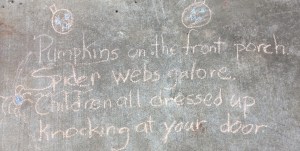 Pumpkins on the front porch
Spider webs galore.
Children all dressed up
Knocking at your door